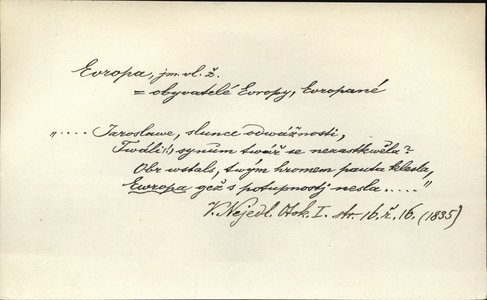 Evropa, jm. vl. ž.
= obyvatelé Evropy, Evropané
„.... Jaroslawe, slunce odwážnosti,
Twáli(!) synům twář se nezastkwěla?
Obr wstals, twým hromem pauta klesla,
Ewropa gež s potupností nesla ....."
V. Nejedl. Otok. I. str. 16. ř. 16. (1835)